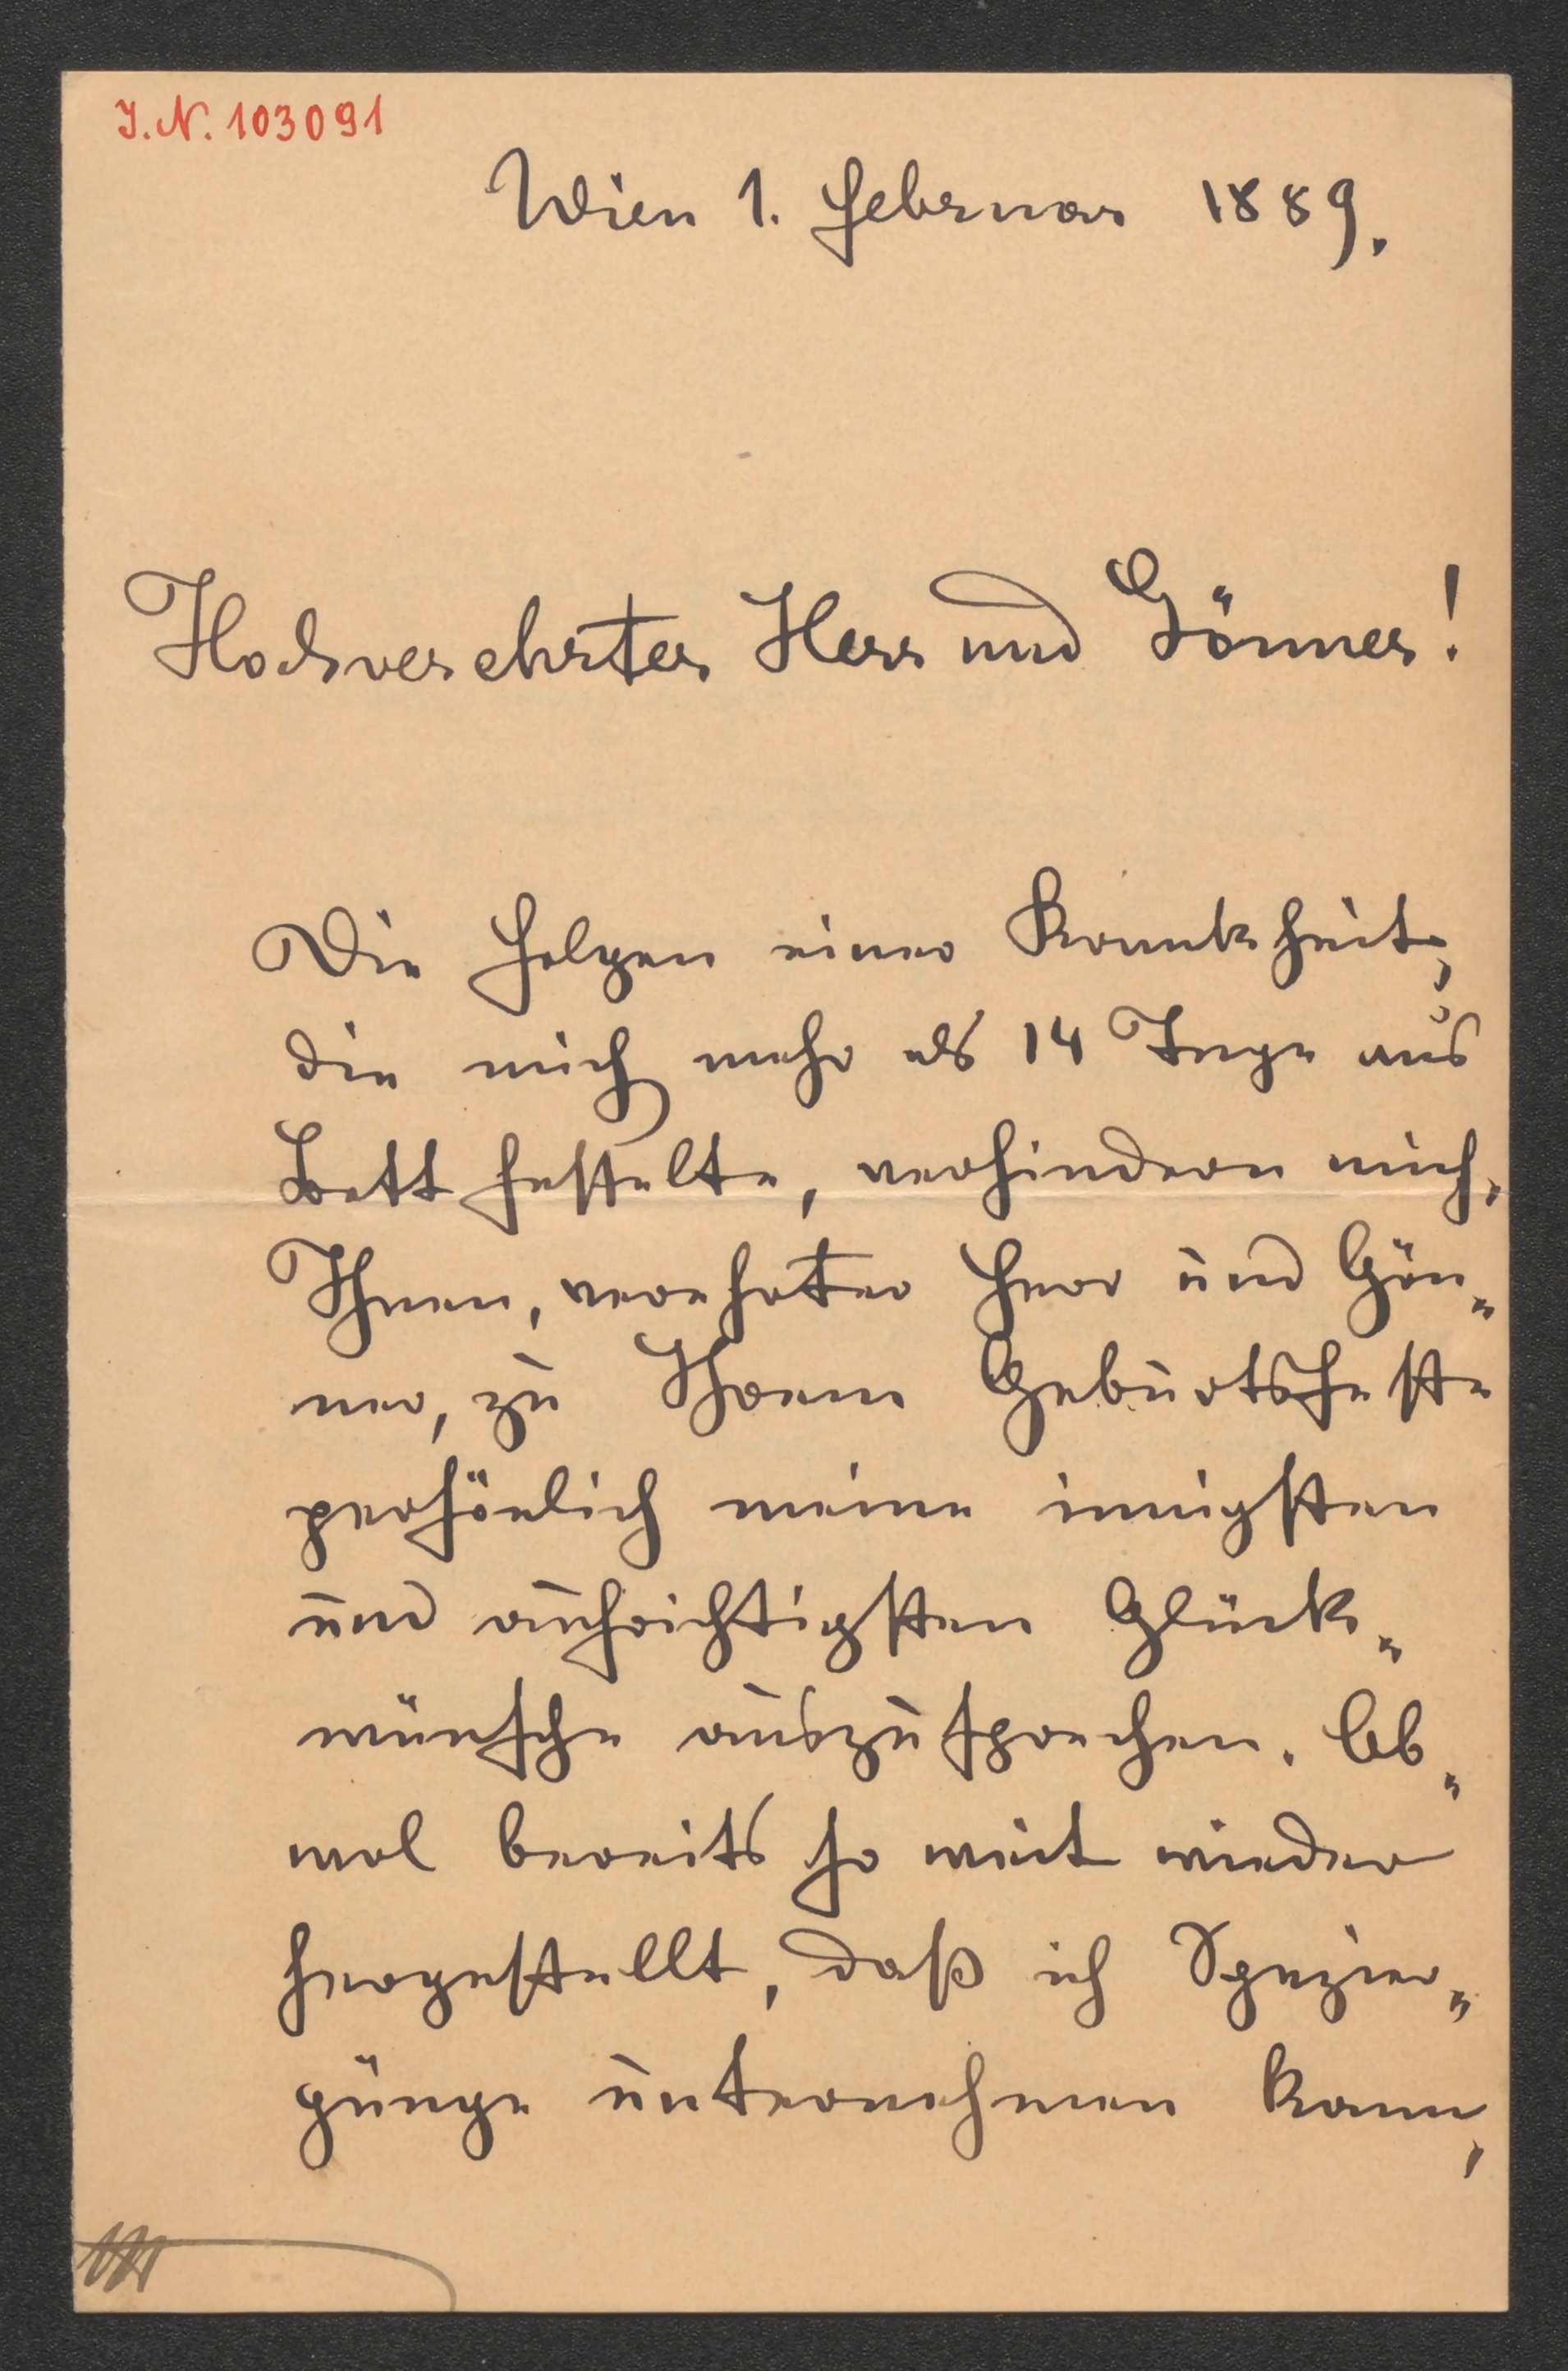 I.N. 103091
Wien 1. Februar 1889.
Hochverehrter Herr und Gönner!
Die Folgen einer Krankheit,
die mich mehr als 14 Tage aus
Bett fesselte, verhindern mich,
Ihnen, verehrter Herr und Gön„
ner, zu Ihrem Geburtsfeste
persönlich meine innigsten
und aufrichtigsten Glück„
wünsche auszusprechen. Ob„
wol bereits so weit wieder
hergestellt, daß ich Spazier„
gänge unternehmen kann,